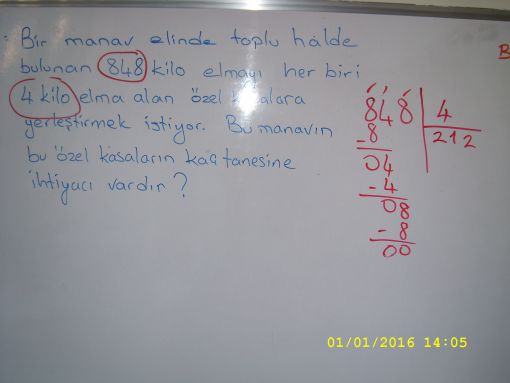 Bir manav elinde toplu halde
bulunan 848 kilo elmayı her biri
4 kilo elma alan özel kasalara
yerleştirmek istiyor. Bu manavın
bu özel kasaların kaç tanesine
ihtiyacı vardır?
B
848 4
- 8 212
04
- 4
08
- 8
00
01/01/2016 14:05